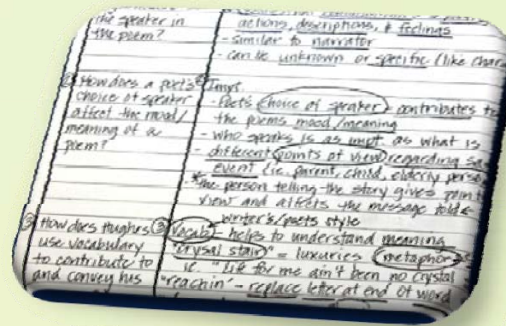 the speaker in
the poem?
actions, descriptions, & feelings
- similar to narrator
- can be unknown or specific (like char
How does a poet's
choice of speaker
affect the mood/
meaning of a
poem?
Impt.
- Poets choice of speaker contributes to
the poems mood/meaning
- who speaks is as impt. as what is
- different points of view regarding sa
event (ie. parent, child, elderly perso
*the person telling the story gives point
view and affects the message told &
writer's/poets style
③ How does Hughes
use vocabulary
to contribute to
and convey his
③ Vocab - helps to understand meaning
"crysal stair" = luxuries (metaphor)
ie. "Life for me ain't been no crystal
"reachin' - replace letter at end of word